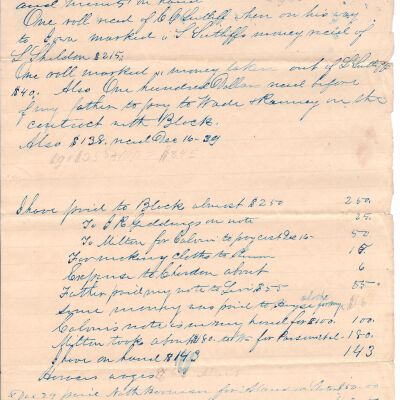 and minutes on hand
One roll recd of C C Sutliff then on his way
to Iowa marked S Sutliffs money recd of
L Sheldon $215.
One roll marked money taken out of S Sutliff
$40. Also One hundred Dollar recd before
of my father to pay to Wade & Ranney on the
contract with Block.
Also $138. recd Dec 16-39
I have paid to Block almost $250 250.
To J R Giddings on note 25.
To Milton for Calvin to pay cost Dec 16- 50
For making cloths to 15
Expense to Chardon about 6
Father paid my note to Levi $55 55
Some money was paid to above
Calvins note is in my hand for $100. 100.
Milton took about $180. 180.
I have on hand $143 143
wages
Dec 29 paid Nath for